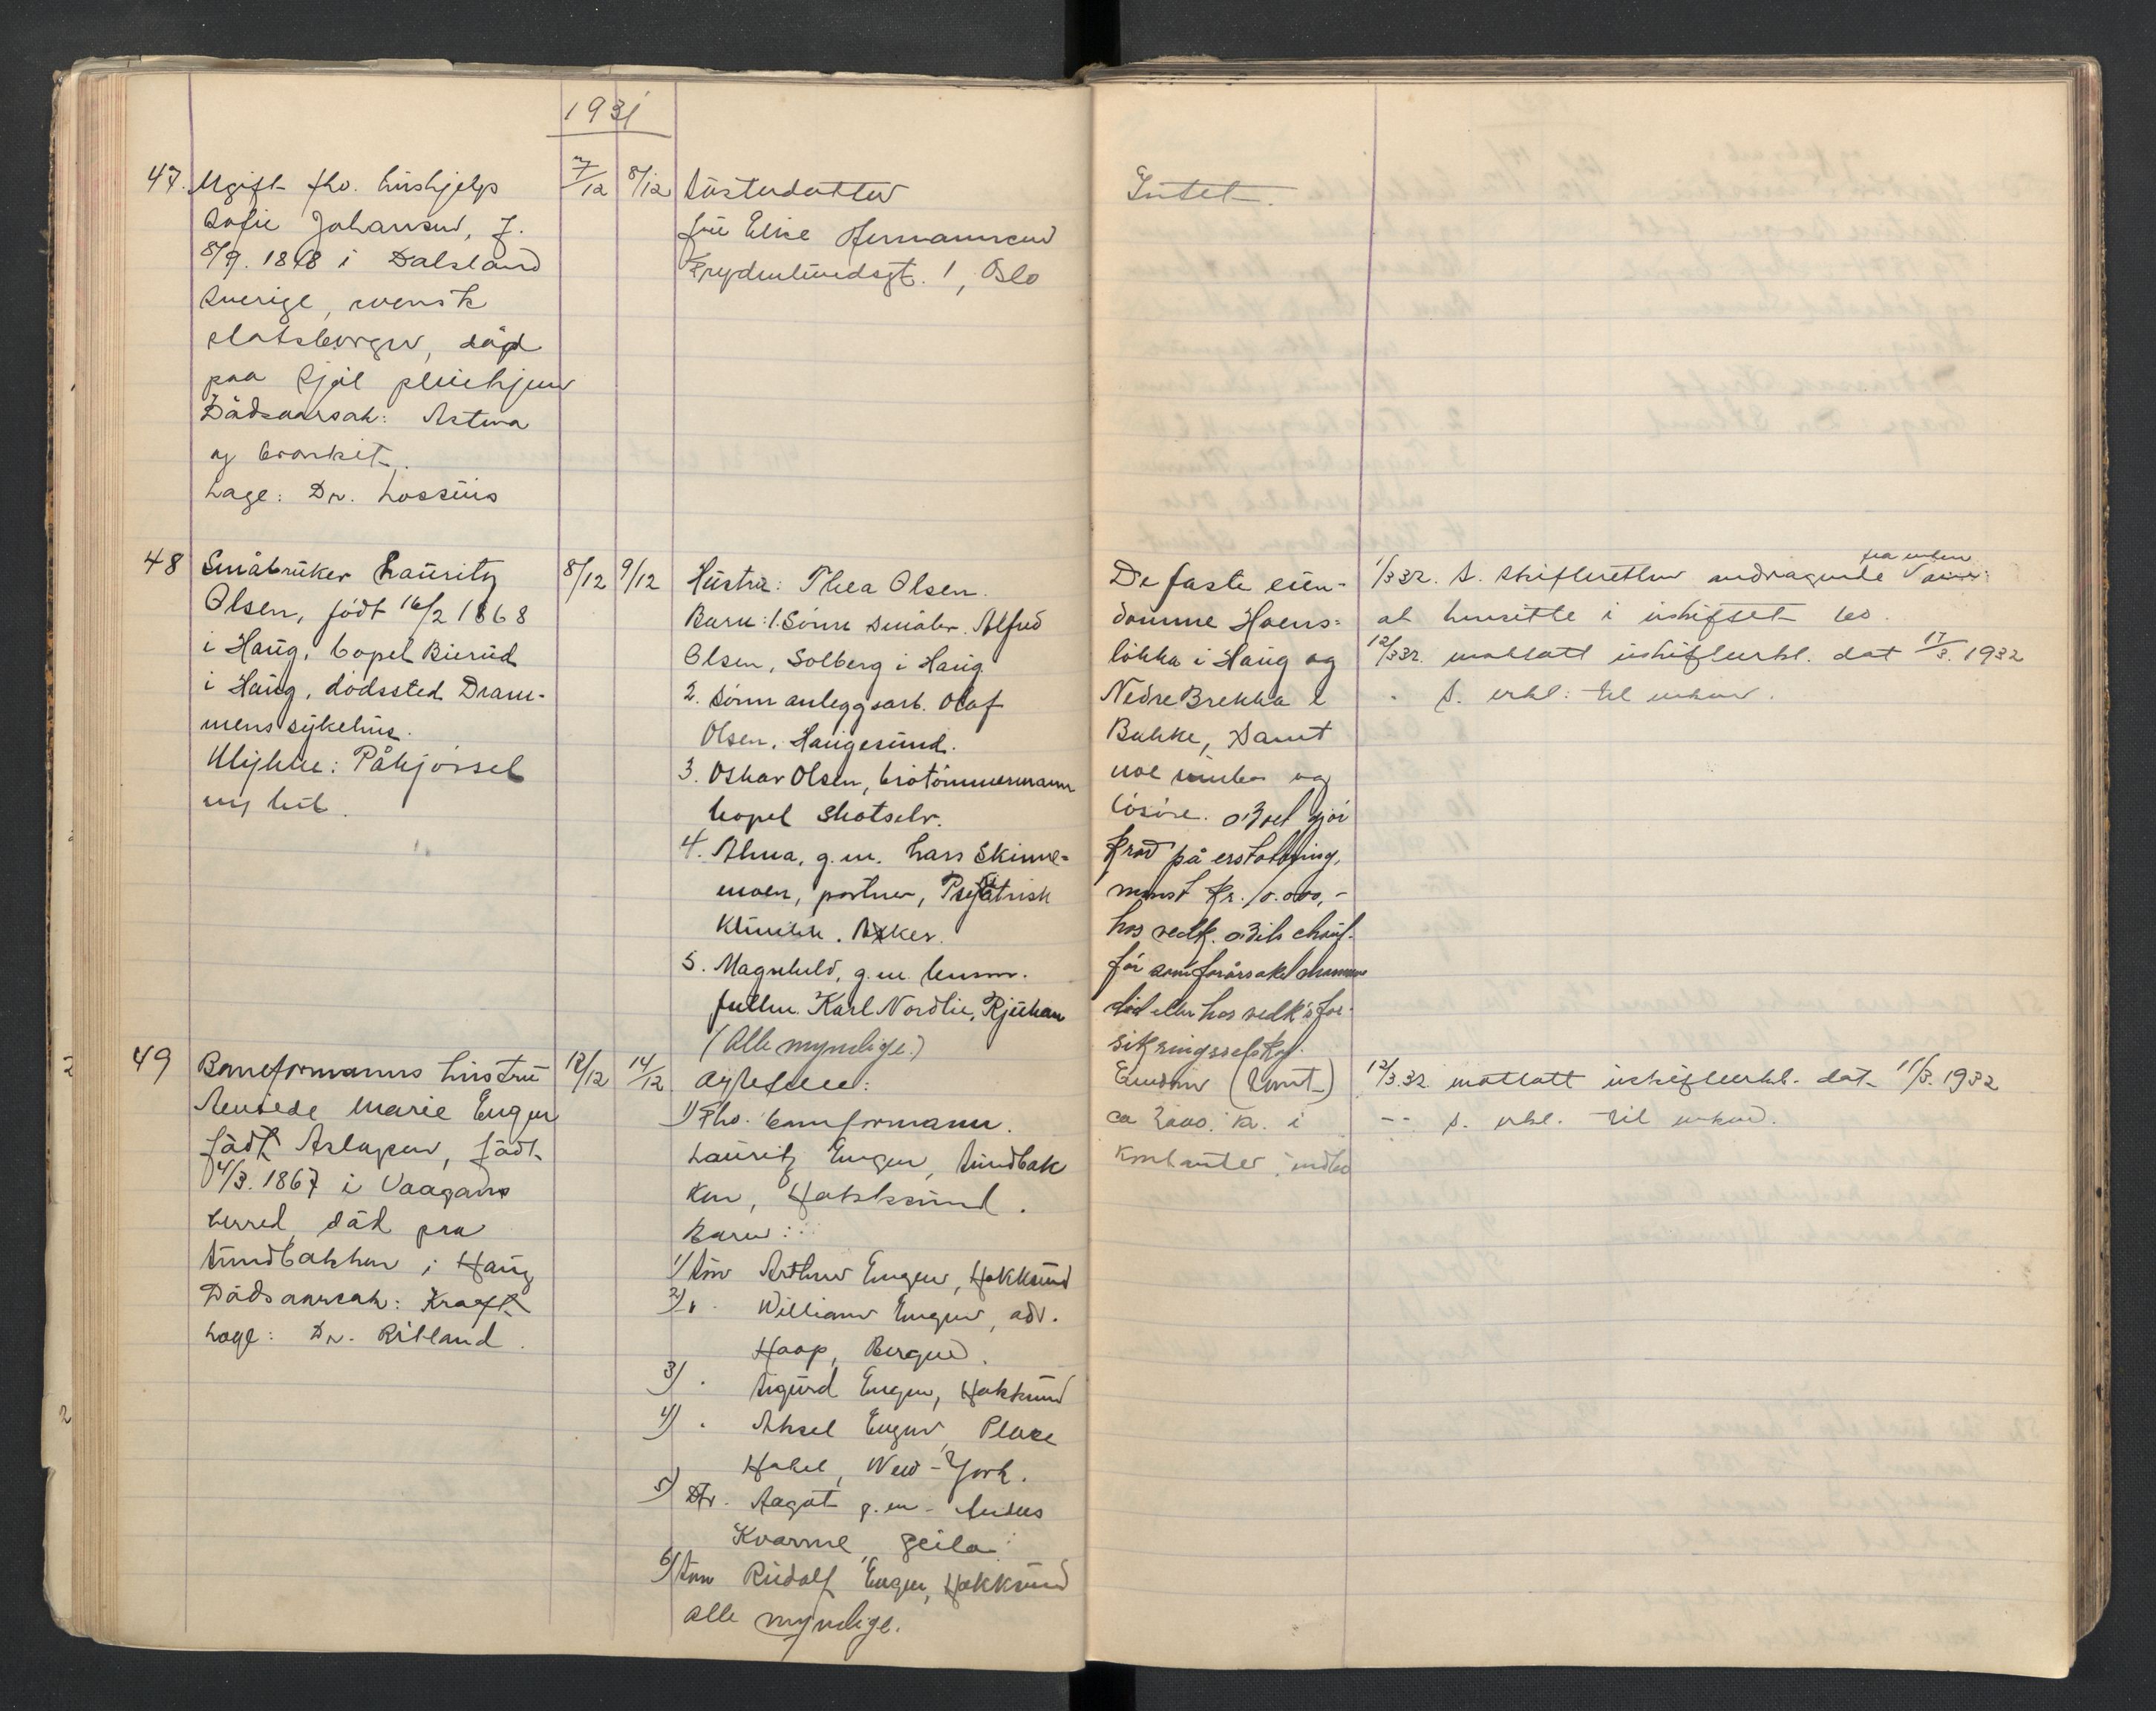 1931
47. Ugift fhv. hushjelp
Sofie Johansen, f.
8/9. 1848 i Dalsland
Sverige, svensk
statsborger, død
paa Fjøl pleiehjem
Dødsaarsak: Astma
og bronkit.
Læge: Dr. Lossius
7/12 8/12
Søsterdatter
frü Elise Hermannsen
Frydenlundsgt. 1, Oslo
Intet.
48 Småbruker Lauritz
Olsen, født 16/2 1868
i Haug, bopel Bierud
i Haug, dødssted Dram-
mens sykehus.
Ulykke: Påkjørsel
av bil.
8/12 9/12
Hustru: Thea Olsen.
Barn: 1. Sønn småbr. Alfred
Olsen, Solberg i Haug.
2. Sønn anleggsarb. Olaf
Olsen, Haugesund.
3. Oskar Olsen, brotømmermann
bopel Skotselv.
4. Alma, g.m. Lars Skinne-
moen, portner, Psykiatrisk
Klinikk. Aker.
5. Magnhild, g.m. kunstr.
fullm. Karl Nordlie, Rjukan
(Alle myndige.)
De faste eien-
domme Hoens-
løkka i Haug og
Nedre Brekka i
Bakke, Samt
noe innbo og
løsøre. Boet gjør
krav på erstatning,
minst kr. 10.000,-
hos vedk. bils chauf-
før som forårsaket mannens
død eller hos vedk's for-
sikringsselskap.
1/3 32. S. skifteretten andragende fra enken
at hensitte i uskiftet bo.
12/3 32. mottatt uskifteerkl. dat 17/3. 1932
" S. erkl. til enken.
49 Baneformanns hustru
Marie Engen
født Aslaksen, født
4/3. 1867 i Vaagaas
herred, død paa
Sundbakken i Haug
Dødsaarsak: Kræft
Læge: Dr. Ribland.
12/12 14/12
Ægtefelle:
1) Fhv. baneformann
Lauritz Engen, Sundbak
ken, Hokksund.
Barn:
1) Søn Arthur Engen, Hokksund
2) " William Engen, adr.
Haop, Bergen.
3) " Sigurd Engen, Hokksund
4) " Aksel Engen, Place
Hotel, New-York.
5) Dtr. Aagot g.m.
Kvarme, Geilo
6) Søn Rudolf Engen, Hokksund
Alle myndige.
Eiendom (Tomt)
ca 2000. kr. i
kontanter, indbo
12/3. 32 mottatt uskifteerkl. dat. 11/3. 1932
-- S. erkl. til enkem.